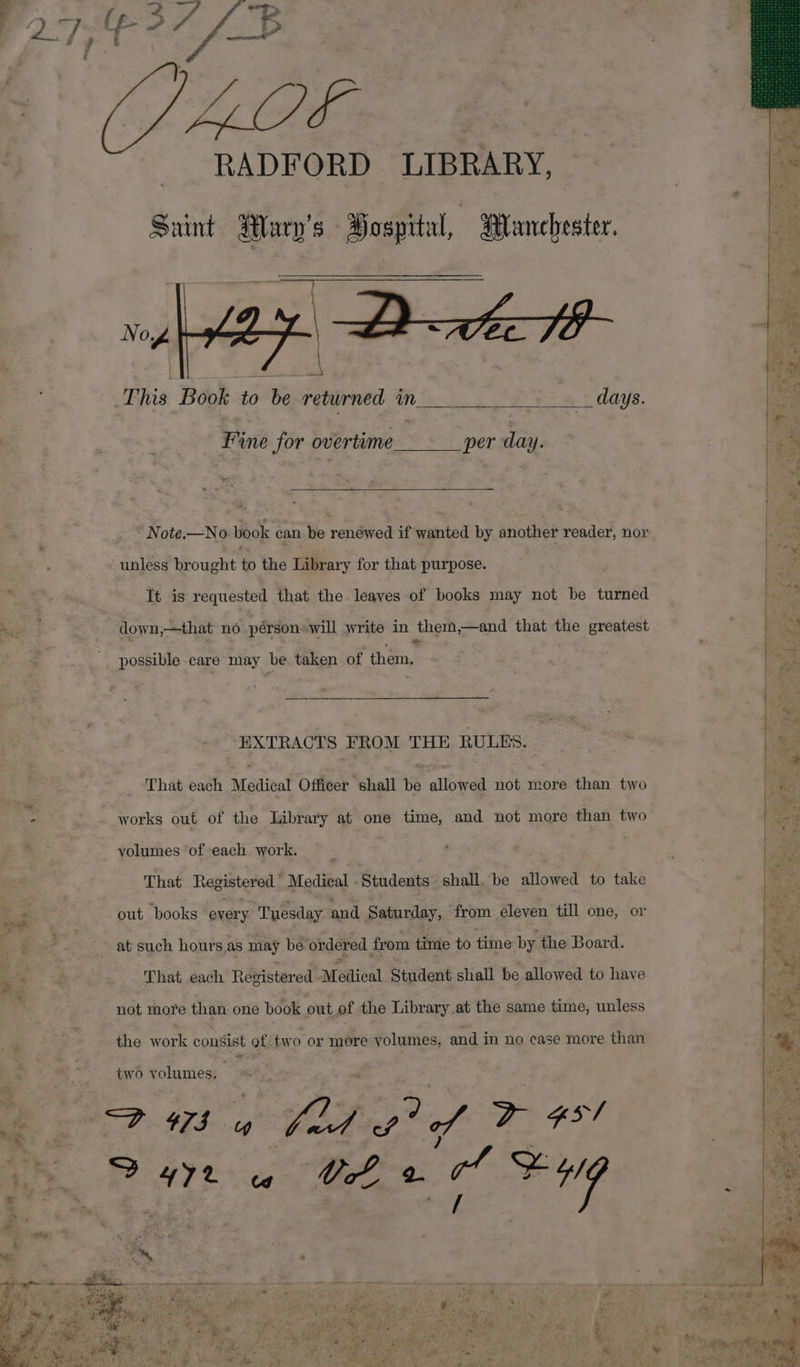 27,437/B
RADFORD LIBRARY,
Saint Mary's Hospital, Manchester.
No. 427 D Sec 18
This Book to be returned in ________ days.
Fine for overtime ____ per day.
Note.—No book can be renewed if wanted by another reader, nor
unless brought to the Library for that purpose.
It is requested that the leaves of books may not be turned
down,—that no person will write in them,—and that the greatest
possible care may be taken of them.
EXTRACTS FROM THE RULES.
That each Medical Officer shall be allowed not more than two
works out of the Library at one time, and not more than two
volumes of each work.
That Registered Medical Students shall be allowed to take
out books every Tuesday and Saturday, from eleven till one, or
at such hours as may be ordered from time to time by the Board.
That each Registered Medical Student shall be allowed to have
not more than one book out of the Library at the same time, unless
the work consist of two or more volumes, and in no case more than
two volumes.
473 Part of 451
472 Vol 2 of 419